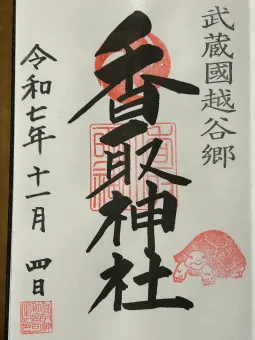 武蔵國越谷郷
香取神社
令和七年十一月 四日